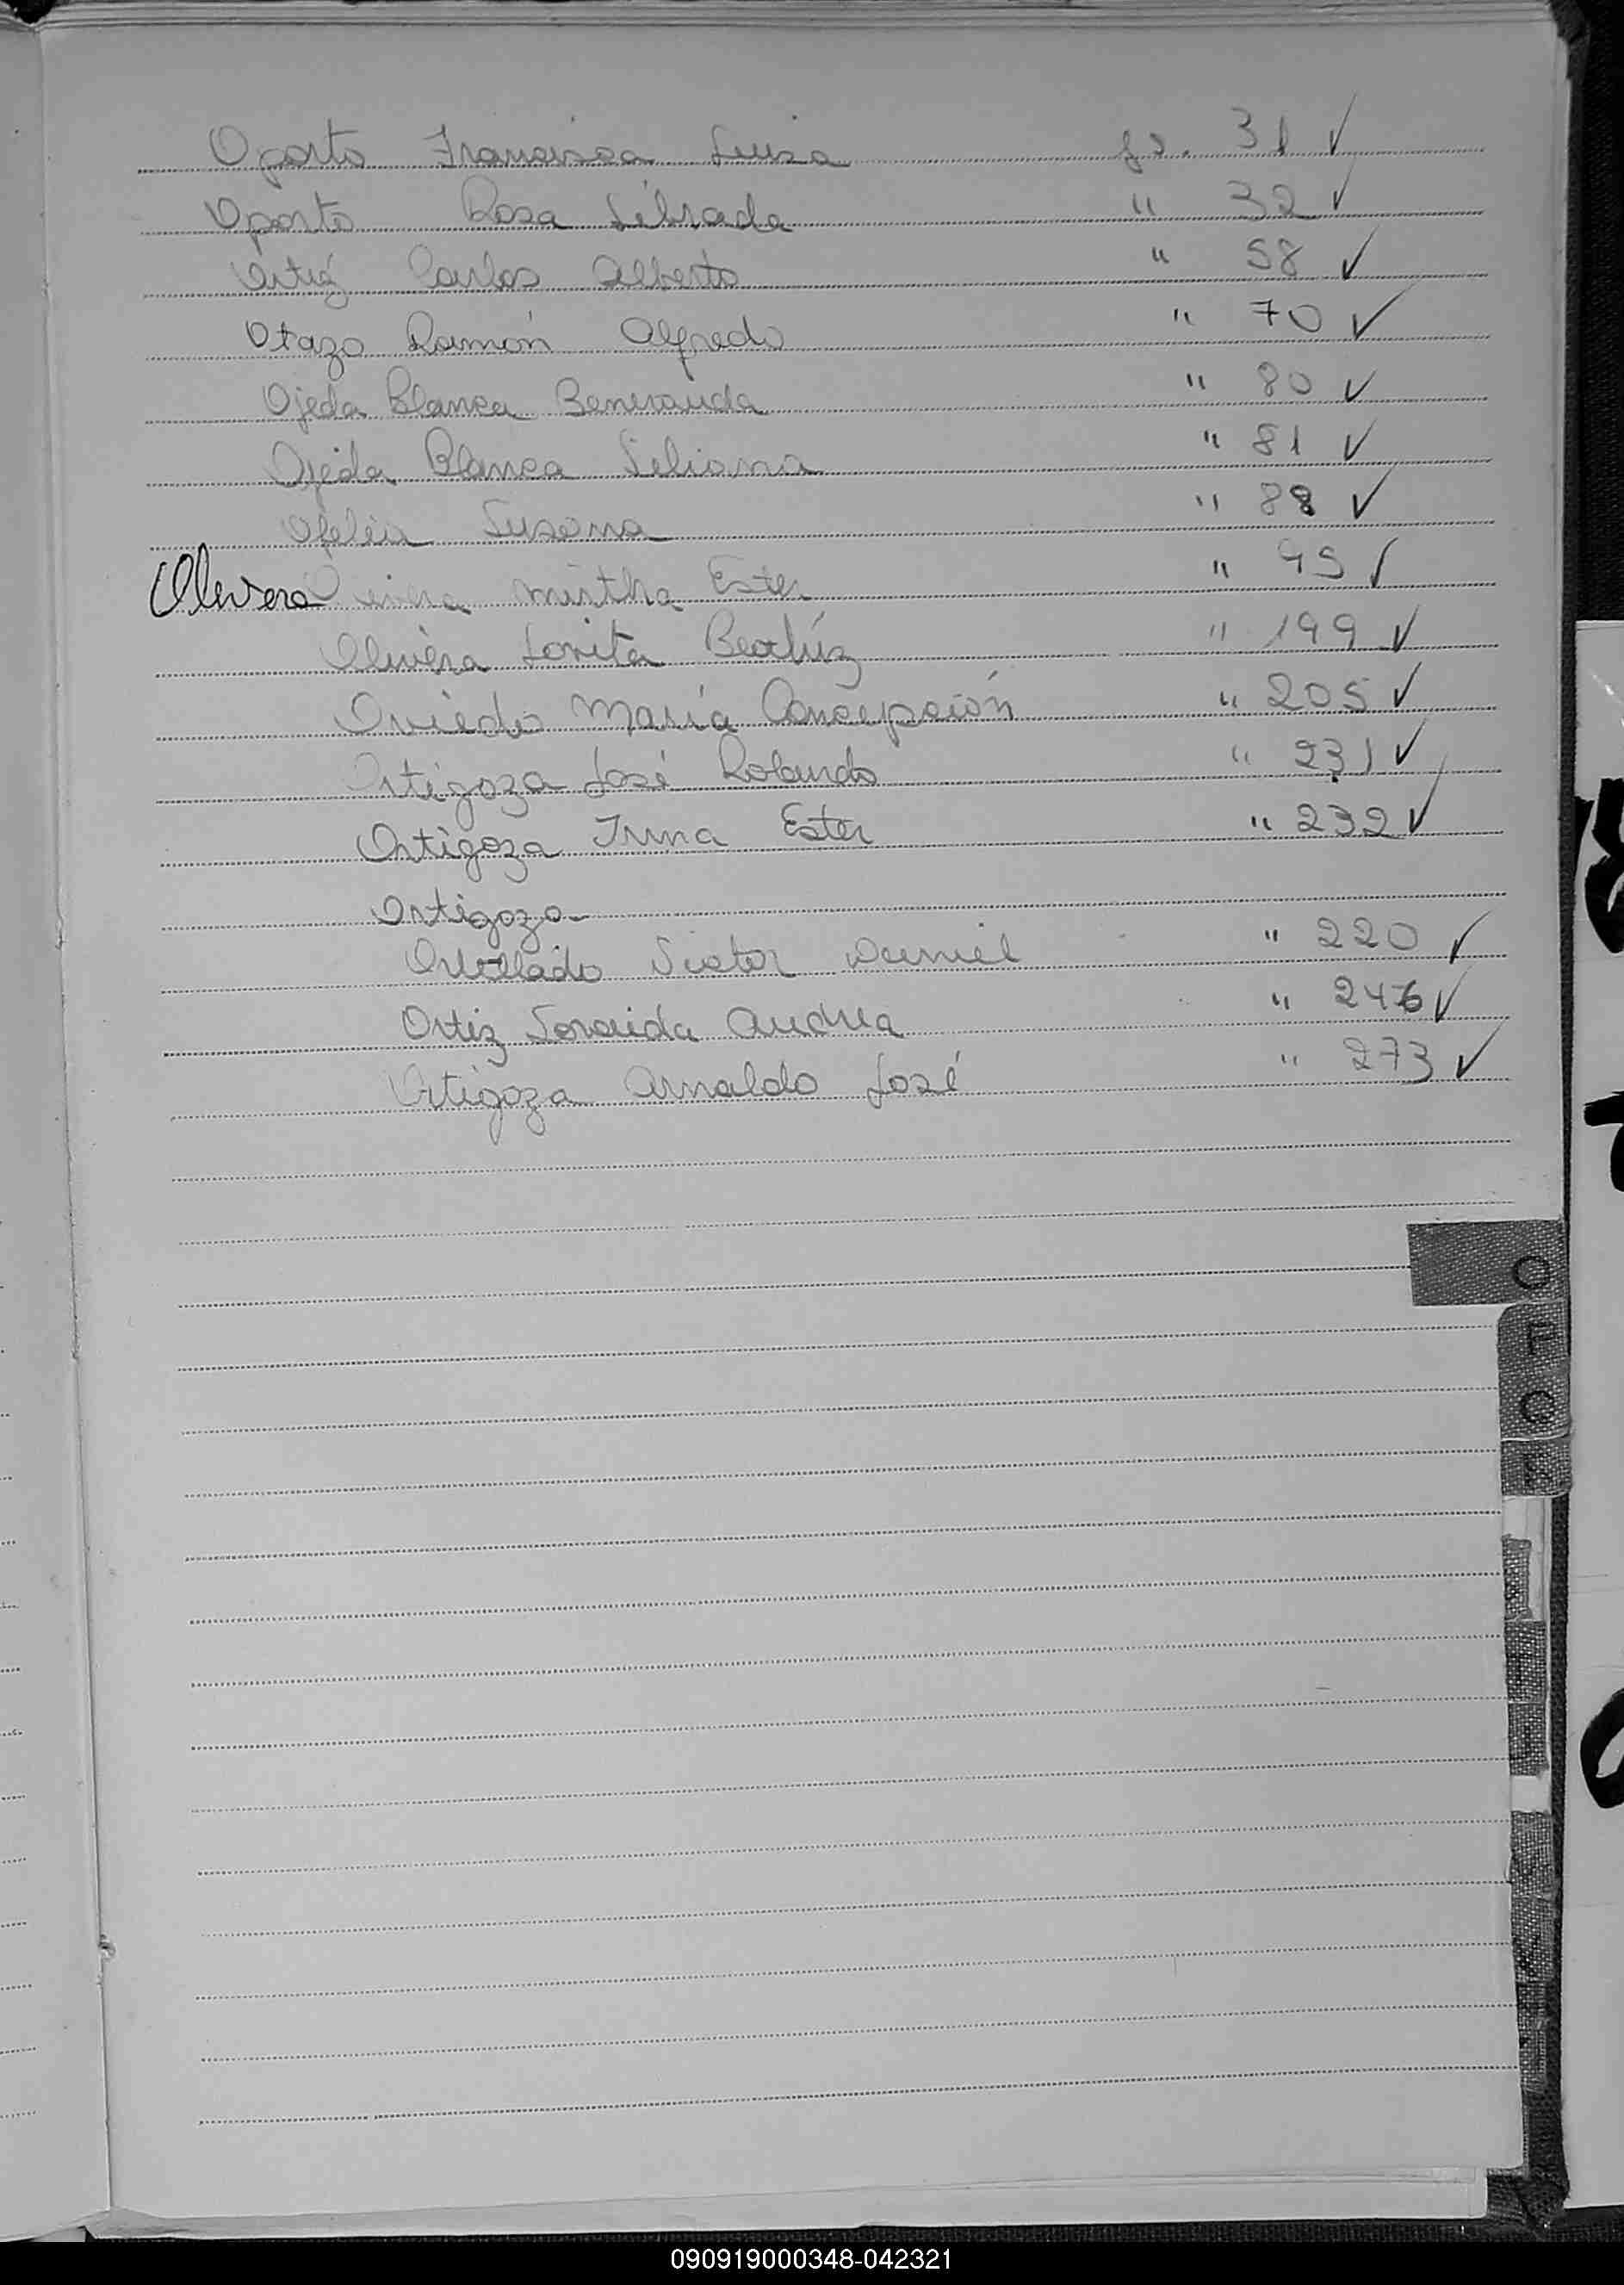 Oporto Francisca Luisa fs. 31 ✓
Oporto Rosa Librada " 32 ✓
Ortiz Carlos Alberto " 58 ✓
Otazo Ramón Alfredo " 70 ✓
Ojeda Blanca Benerauda " 80 ✓
Ojeda Blanca Liliana " 81 ✓
Ofelia Susana " 88 ✓
Olivera Mirtha Ester " 95 ✓
Olivera Lorita Beatríz " 199 ✓
Oviedo María Concepción " 205 ✓
Ortigoza José Rolando " 231 ✓
Ortigoza Irma Ester " 232 ✓
Ortigoza
Victor Daniel " 220 ✓
Ortiz Soraida Andrea " 246 ✓
Ortigoza Arnaldo José " 273 ✓
O
090919000348-042321